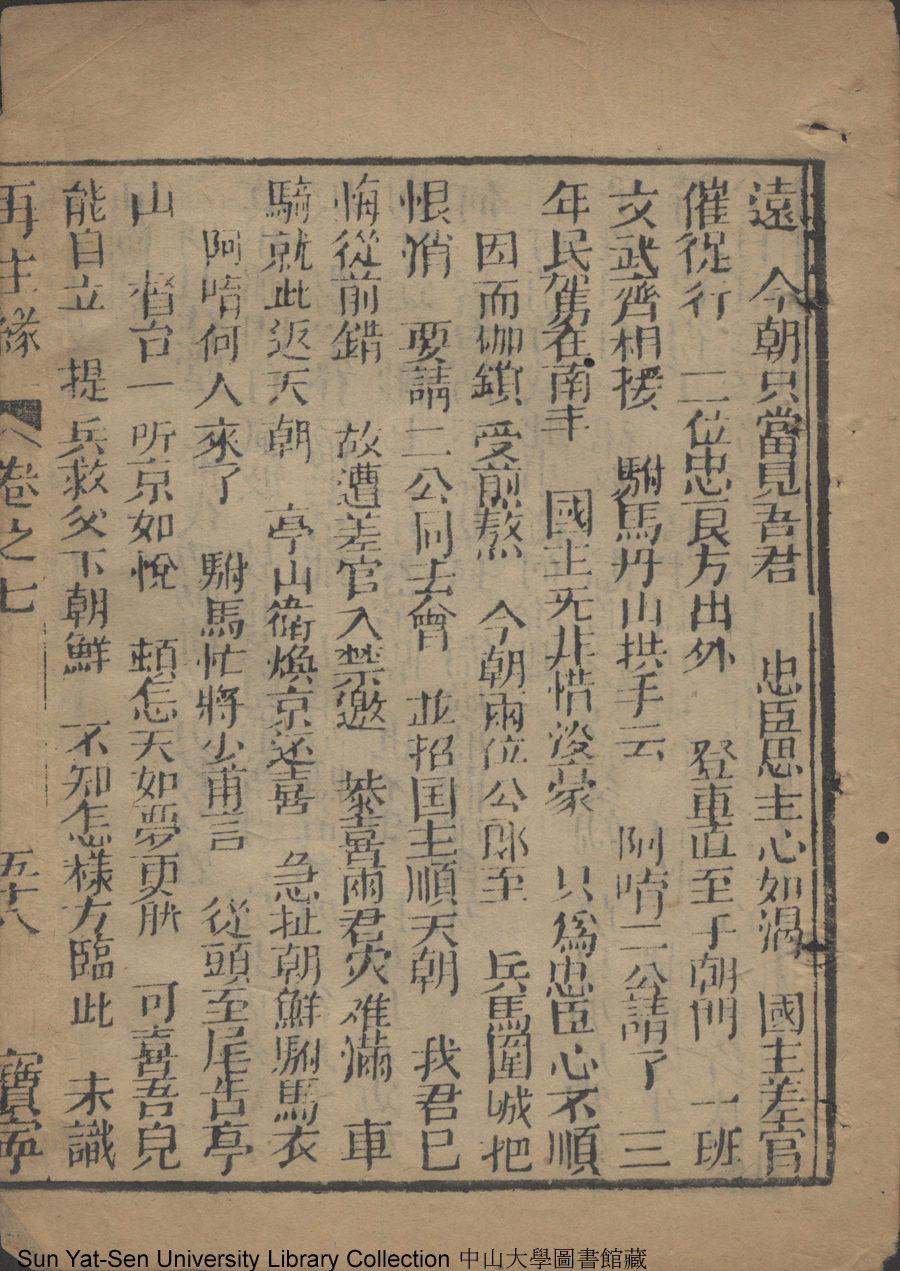 遠　今朝只當見吾君　忠臣思主心如渴　國主差官
催促行　二位忠良方出外　登車直至于朝門　一班
文武齊相接　駙馬丹山拱手云　阿唷二公請了　三
年民駕在南丰　國主旡非惜俊豪　只為忠臣心不順
因而伽鎖受煎熬　今朝兩位公郎至　兵馬圍城把
恨消　要請二公同去會　並招国主順天朝　我君已
悔從前錯　故遭差官入禁邀　恭喜兩君灾难滿　車
騎就此返天朝　亭山衛煥京还喜　急扯朝鮮駙馬衣
阿唷何人來了　駙馬忙將少甫言　從頭至尾告亭
山　督台一听京如悅　頓怎天如夢更肰　可喜吾兒
能自立　提兵救父下朝鮮　不知怎樣方臨此　未識
再生緣　卷之七　五十八　寶寧
Sun Yat-Sen University Library Collection 中山大學圖書館藏